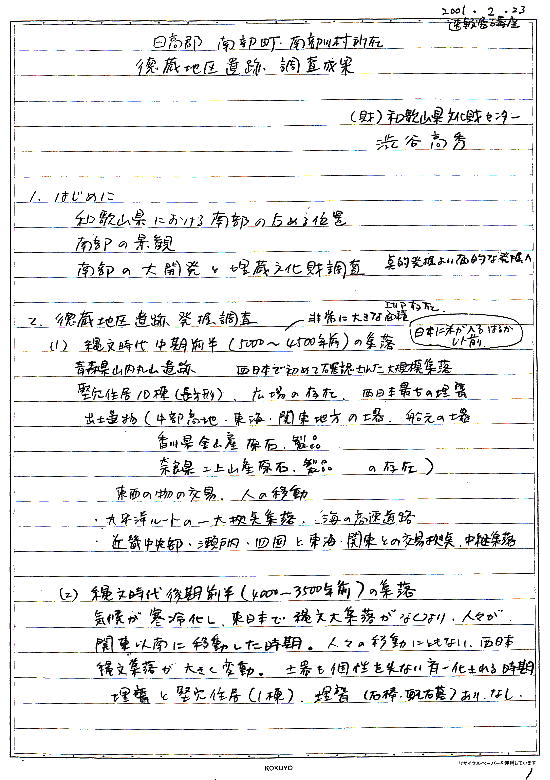 2001. 2. 23
速報会講座
日高郡 南部町・南部川村所在
徳蔵地区遺跡 調査成果
(財)和歌山県文化財センター
渋谷高秀
1. はじめに
和歌山県における南部の占める位置
南部の景観
南部の大開発と埋蔵文化財調査 点的発掘より面的な発掘へ
2. 徳蔵地区遺跡発掘調査
非常に大きな
(1) 縄文時代中期前半(5000〜4500年前)の集落
日本に米が入るはるか
以前
青森県山内丸山遺跡 西日本で初めて確認された大規模集落
竪穴住居10棟(長方形)、広場の存在、西日本最古の埋甕
出土遺物(中部高地・東海・関東地方の土器、船元の土器
香川県金山産原石、製品
奈良県二上山産原石、製品 の存在)
東西の物の交易、人の移動
・太平洋ルートの一大拠点集落、海の高速道路
・近畿中央部・瀬戸内・四国と東海・関東との交易拠点、中継集落
(2) 縄文時代後期前半(4000〜3500年前)の集落
気候が寒冷化し、東日本で縄文大集落がなくなり、人々が
関東以南に移動した時期。人々の移動にともない、西日本
縄文集落が大きく変動。土器も個性を失ない斉一化される時期
埋甕と竪穴住居(1棟)、埋甕(石棒・配石墓)あり、なし
リサイクルペーパーを使用しています
KOKUYO
1